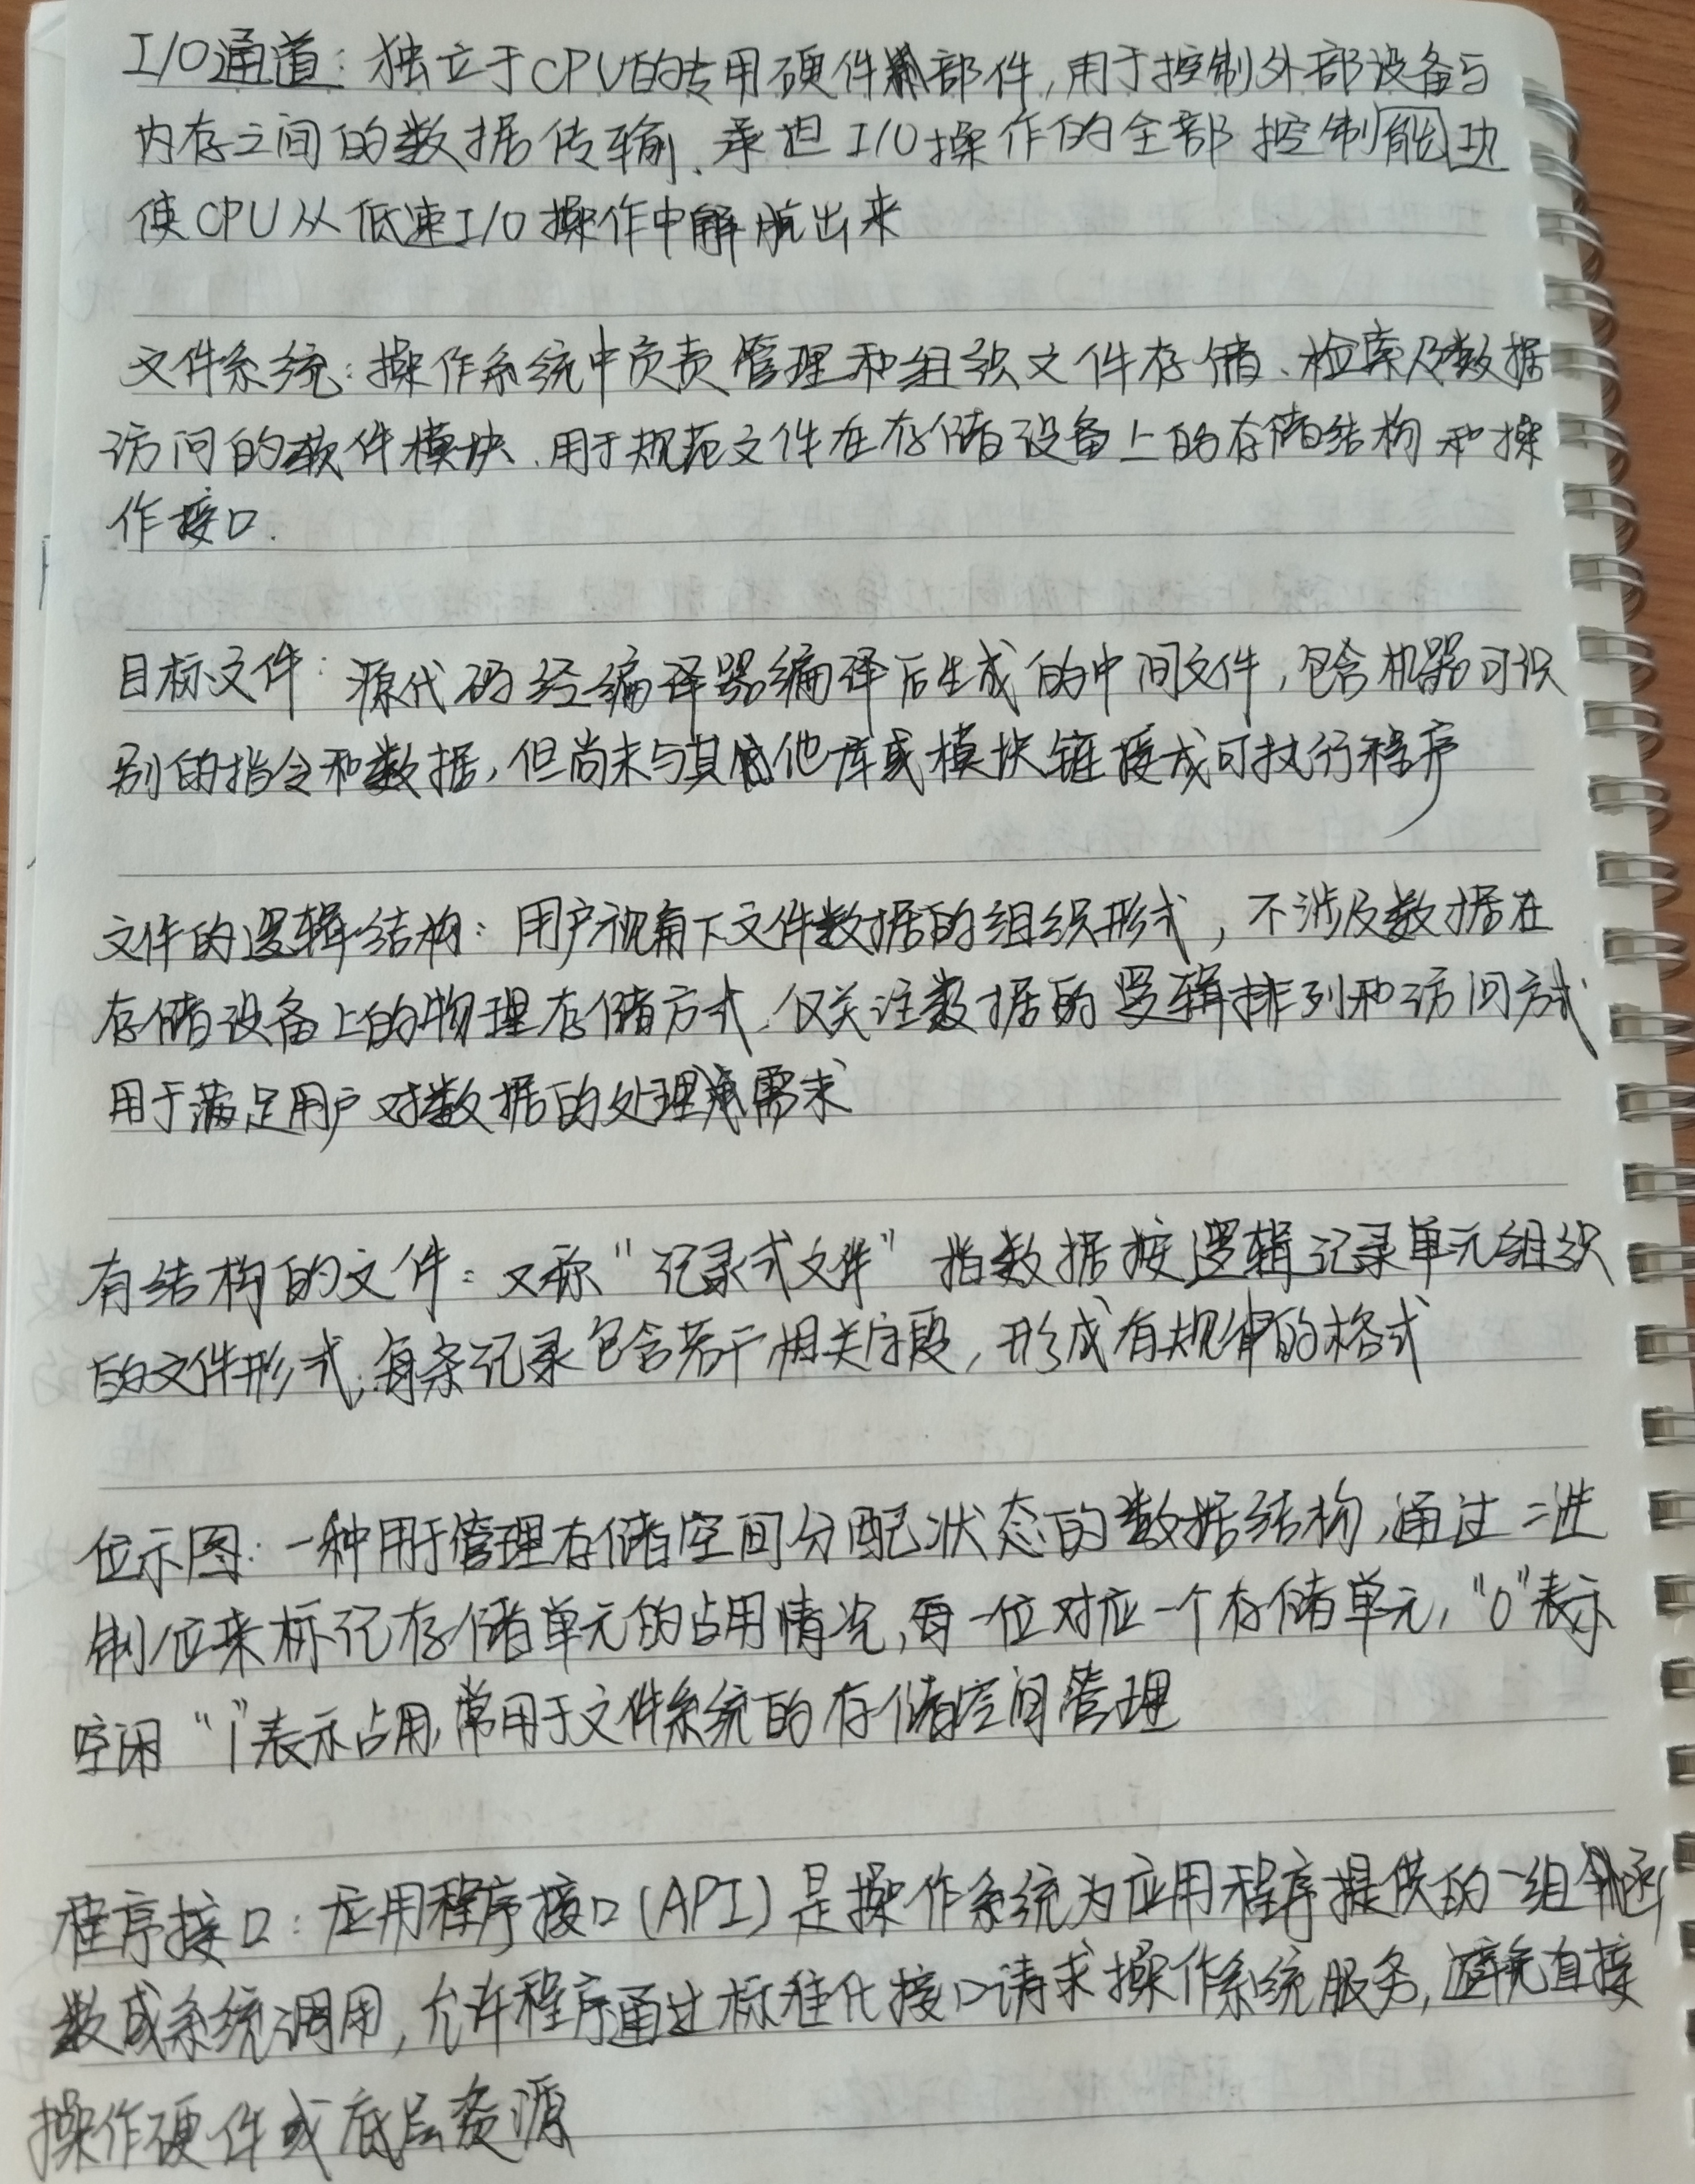 I/O通道：独立于CPU的专用硬件部件,用于控制外部设备与
内存之间的数据传输、承担I/O操作的全部控制能功
使CPU从低速I/O操作中解放出来
文件系统：操作系统中负责管理和组织文件存储、检索及数据
访问的软件模块、用于规范文件在存储设备上的存储结构和操
作接口.
目标文件：源代码经编译器编译后生成的中间文件,包含机器可识
别的指令和数据,但尚未与其他库或模块链接成可执行程序
文件的逻辑结构：用户视角下文件数据的组织形式,不涉及数据在
存储设备上的物理存储方式,仅关注数据的逻辑排列和访问方式
用于满足用户对数据的处理需求
有结构的文件：又称"记录式文件"指数据按逻辑记录单元组织
的文件形式,每条记录包含若干相关字段,形成有规律的格式
位示图：一种用于管理存储空间分配状态的数据结构,通过二进
制位来标记存储单元的占用情况,每一位对应一个存储单元,"0"表示
空闲"1"表示占用,常用于文件系统的存储空间管理
程序接口：应用程序接口(API)是操作系统为应用程序提供的一组函
数或系统调用,允许程序通过标准化接口请求操作系统服务,避免直接
操作硬件或底层资源